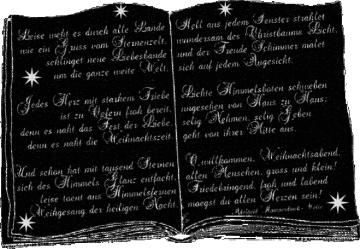 Leise weht es durch alle Lande
wie ein Gruss vom Sternenzelt,
schlinget neue Liebesbande
um die ganze weite Welt.
Jedes Herz mit starkem Triebe
ist zu Opfern froh bereit,
denn es naht das Fest der Liebe,
denn es naht die Weihnachtszeit.
Und schon hat mit tausend Sternen
sich des Himmels Glanz entfacht,
leise tönt aus Himmelsfernen
Weihgesang der heiligen Nacht.
Hell aus jedem Fenster strahlet
wundersam des Christbaums Licht,
und der Freude Schimmer malet
sich auf jedem Angesicht.
Lichte Himmelsboten schweben
ungesehen von Haus zu Haus;
selig Nehmen, selig Geben
geht von ihrer Mitte aus.
O willkommen, Weihnachtsabend,
allen Menschen, gross und klein!
Friedebringend, froh und labend
mögst du allen Herzen sein!